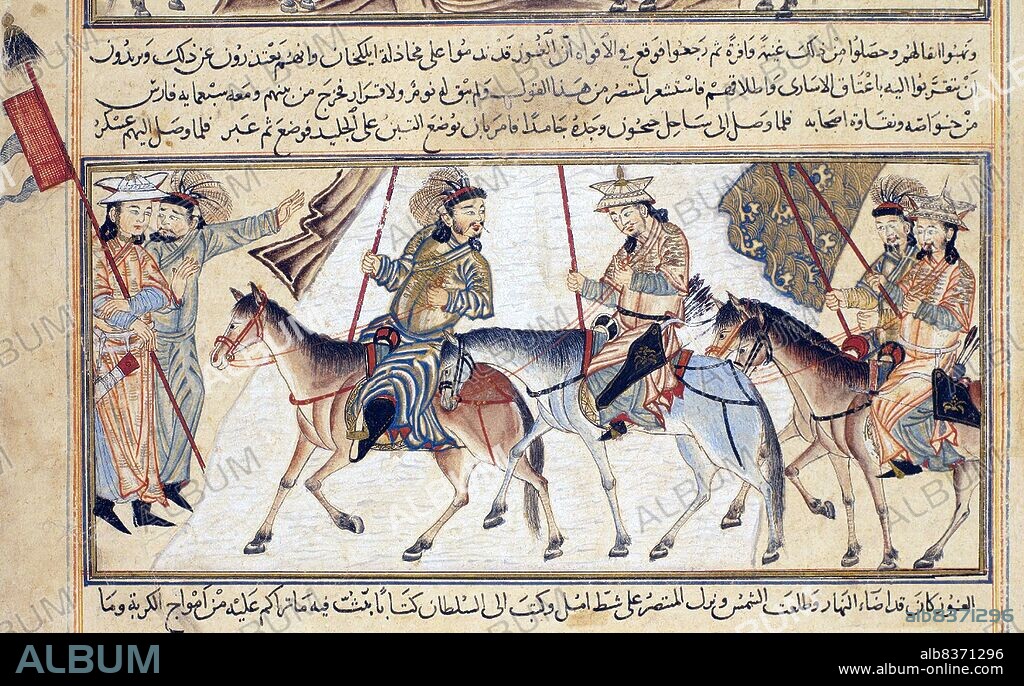 وتهبوا اثقالهم وحصلوا من ذلك غنيمة وافرة ثم رجعوا فوقع في الافواه ان الغزو قد ندموا على مخاذلة ايلكخان وانهم يعتذرون عن ذلك ويريدون
ان يتقربوا اليه باعتاق الاسارى واطلاقهم فاستشعر المنتصر من هذا القول ولم يبق له نوم ولا قرار فخرج من بينهم ومعه سبعمايه فارس
من خواصه ونقاوة اصحابه فلما وصل الى ساحل جيحون وجده جامدا فامر بان يوضع التبن على الجليد فوضع ثم عبر فلما وصل اليهم عسكر
الغزو كان قد اضاء النهار وطلعت الشمس ونزل المنتصر على شط امل وكتب الى السلطان كتابا يبث فيه ما تراكم عليه من امواج الكربة وما
ALBUM
alb8371296
ALBUM
alb8371296
www.album-online.com